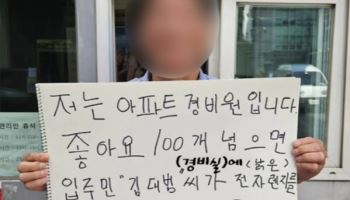 관리인 휴식
저는 아파트 경비원입니다
좋아요 100개 넘으면
(경비실)에 (낡은)
입주민 "김대범 씨가 전자렌지를